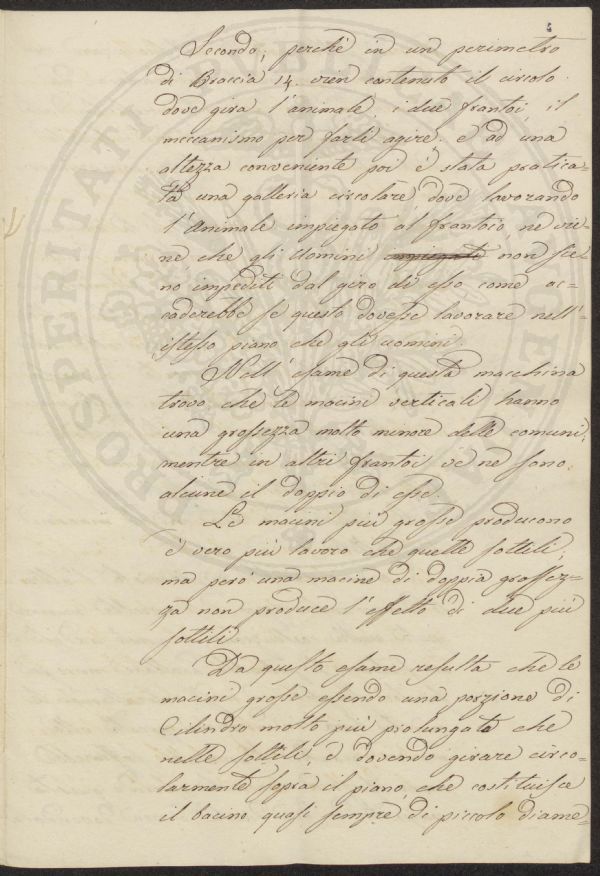 4
Secondo, perchè in un perimetro
di Braccia 14. vien contenuto il circolo
dove gira l'animale, i due frantoi, il
meccanismo per farli agire, e ad una
altezza conveniente poi è stata pratica=
ta una galleria circolare dove lavorando
l'Animale impiegato al frantoio, ne vie=
ne, che gli Uomini impiegati non sie=
no impediti dal giro di esso come ac=
caderebbe se questo dovesse lavorare nell'=
istesso piano che gli uomini.
Nell'esame di questa macchina
trovo che le macini verticali hanno
una grossezza molto minore delle comuni,
mentre in altri frantoi ve ne sono
alcune il doppio di esse.
Le macini più grosse producono
è vero più lavoro che quelle sottili,
ma però una macine di doppia grossez=
za non produce l'effetto di due più
sottili.
Da questo esame resulta che le
macini grosse essendo una porzione di
Cilindro molto più prolungata che
nelle sottili, e dovendo girare circo=
larmente sopra il piano, che costituisce
il bacino quasi sempre di piccolo diame=
PROSPERITATI